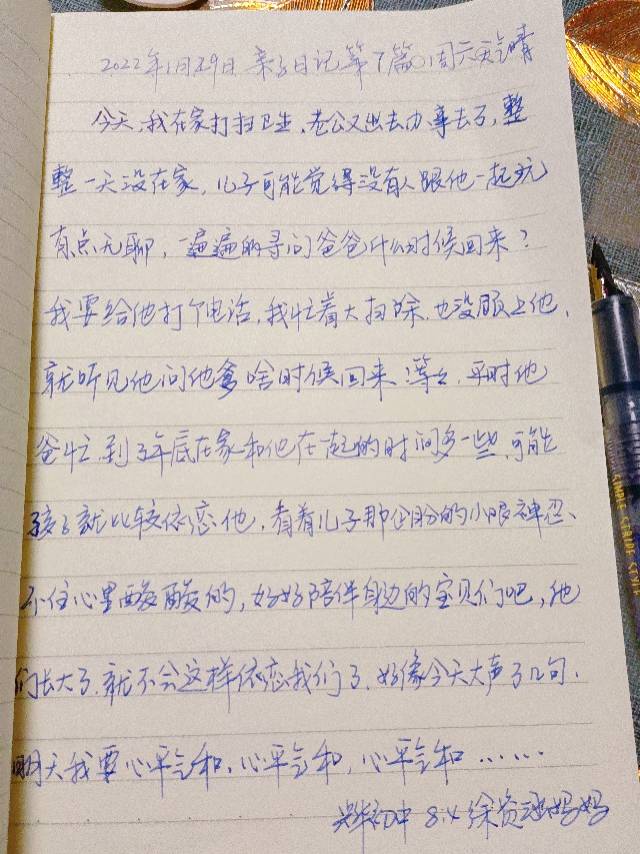 2022年1月29日 亲子日记第7篇 周六天气晴
今天,我在家打扫卫生,老公又出去办事去了,整
整一天没在家,儿子可能觉得没有人跟他一起玩
有点无聊,一遍遍的寻问爸爸什么时候回来?
我要给他打个电话,我忙着大扫除,也没顾上他,
就听见他问他爹啥时候回来 等等,平时他
爸忙,到了年底在家和他在一起的时间多一些,可能
孩子就比较依恋他,看着儿子那企盼的小眼神忍
不住心里酸酸的,好好陪伴身边的宝贝们吧,他
们长大了,就不会这样依恋我们了,好像今天大声了几句,
明天我要心平气和,心平气和,心平气和……
初中 8.4 徐 妈妈
SIMPLE